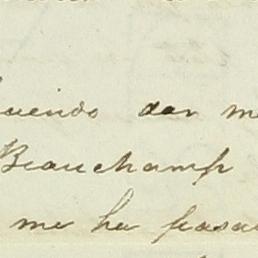 queriendo dar m
Beauchamp
me ha pasa